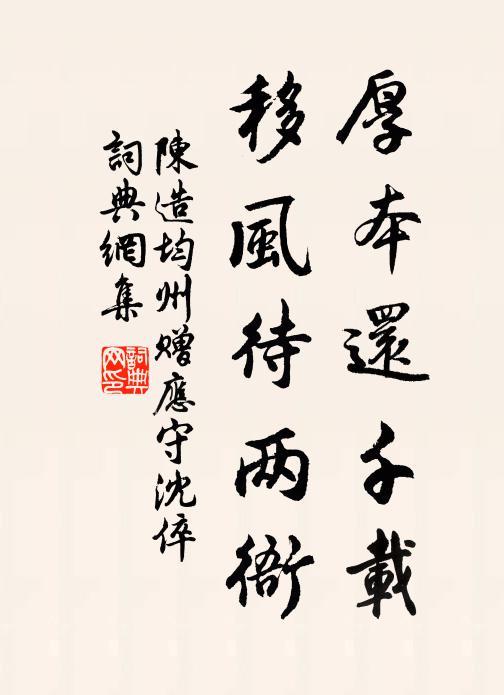 厚本還千載
移風待两衙
陳造均州赠應守沈倅
詞典網集
詞典网印